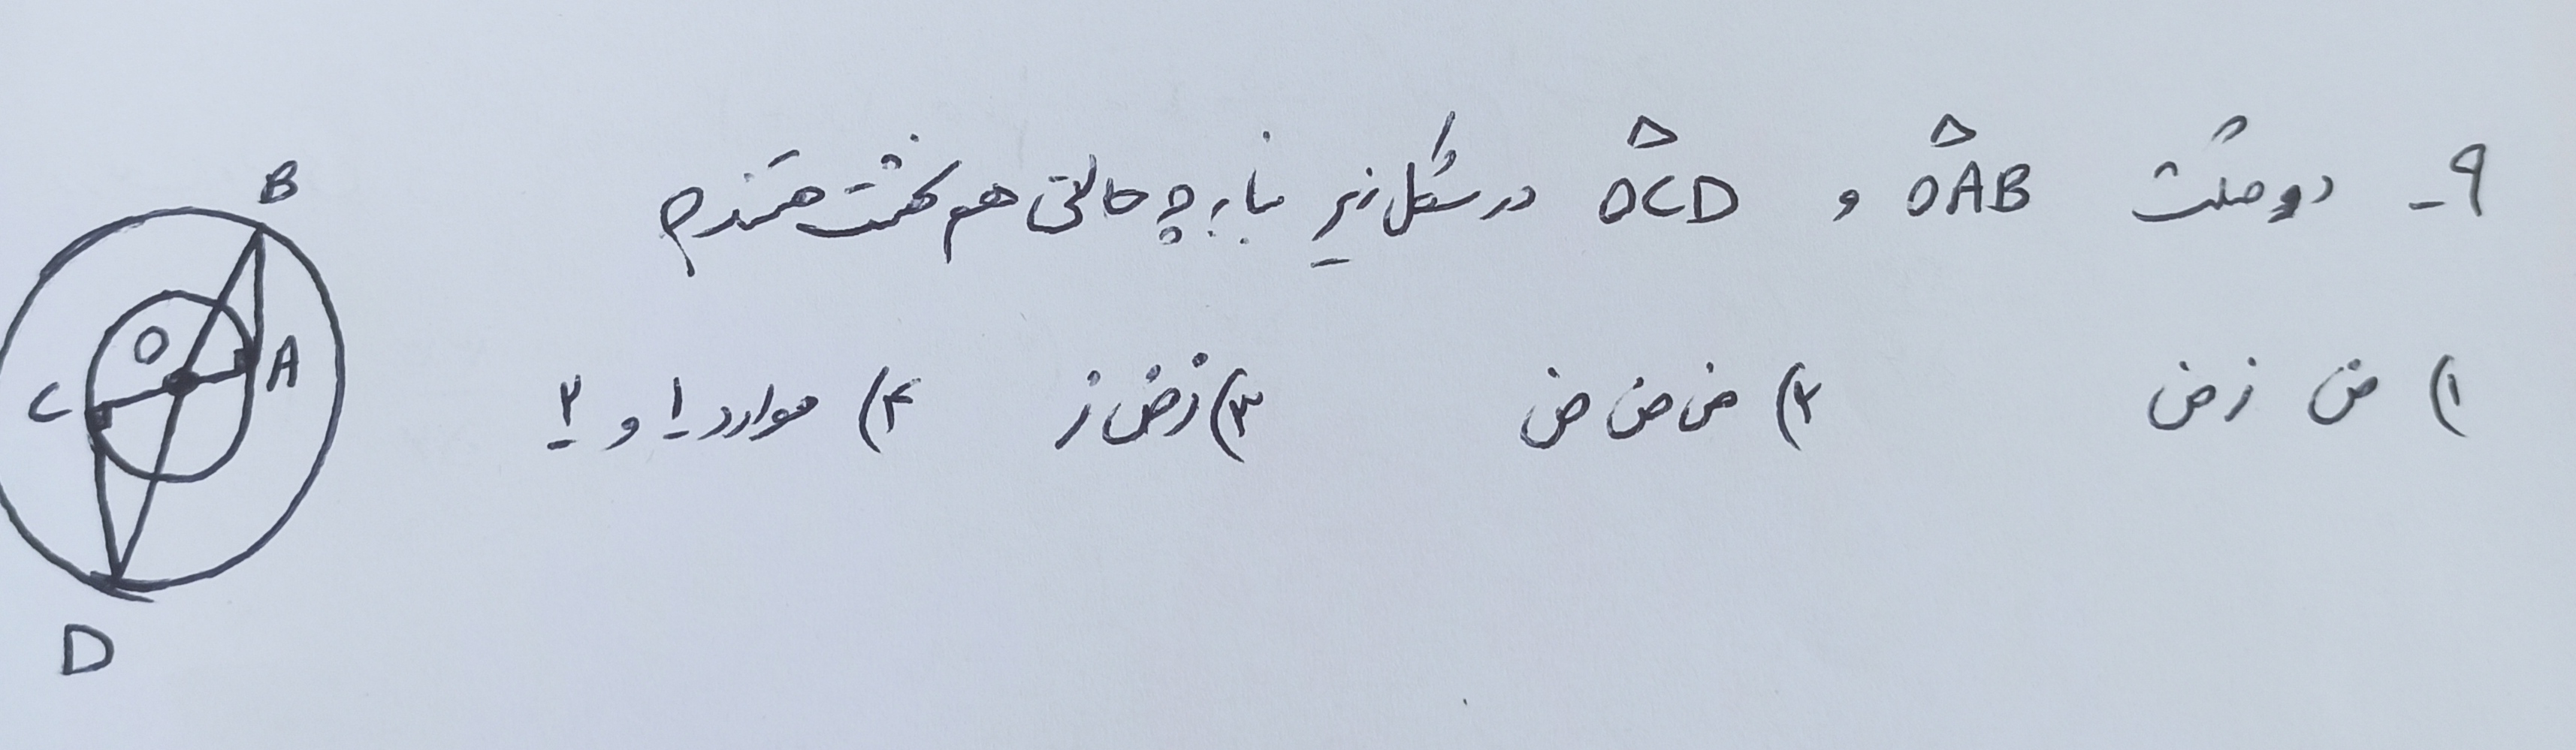 ۹- دو مثلث OAB و OCD در شکل زیر بنابر چه حالتی هم نهشت هستند؟
۱) ض ز ض ۲) ض ض ض ۳) ز ض ز ۴) موارد ۱ و ۲
B
O
A
C
D